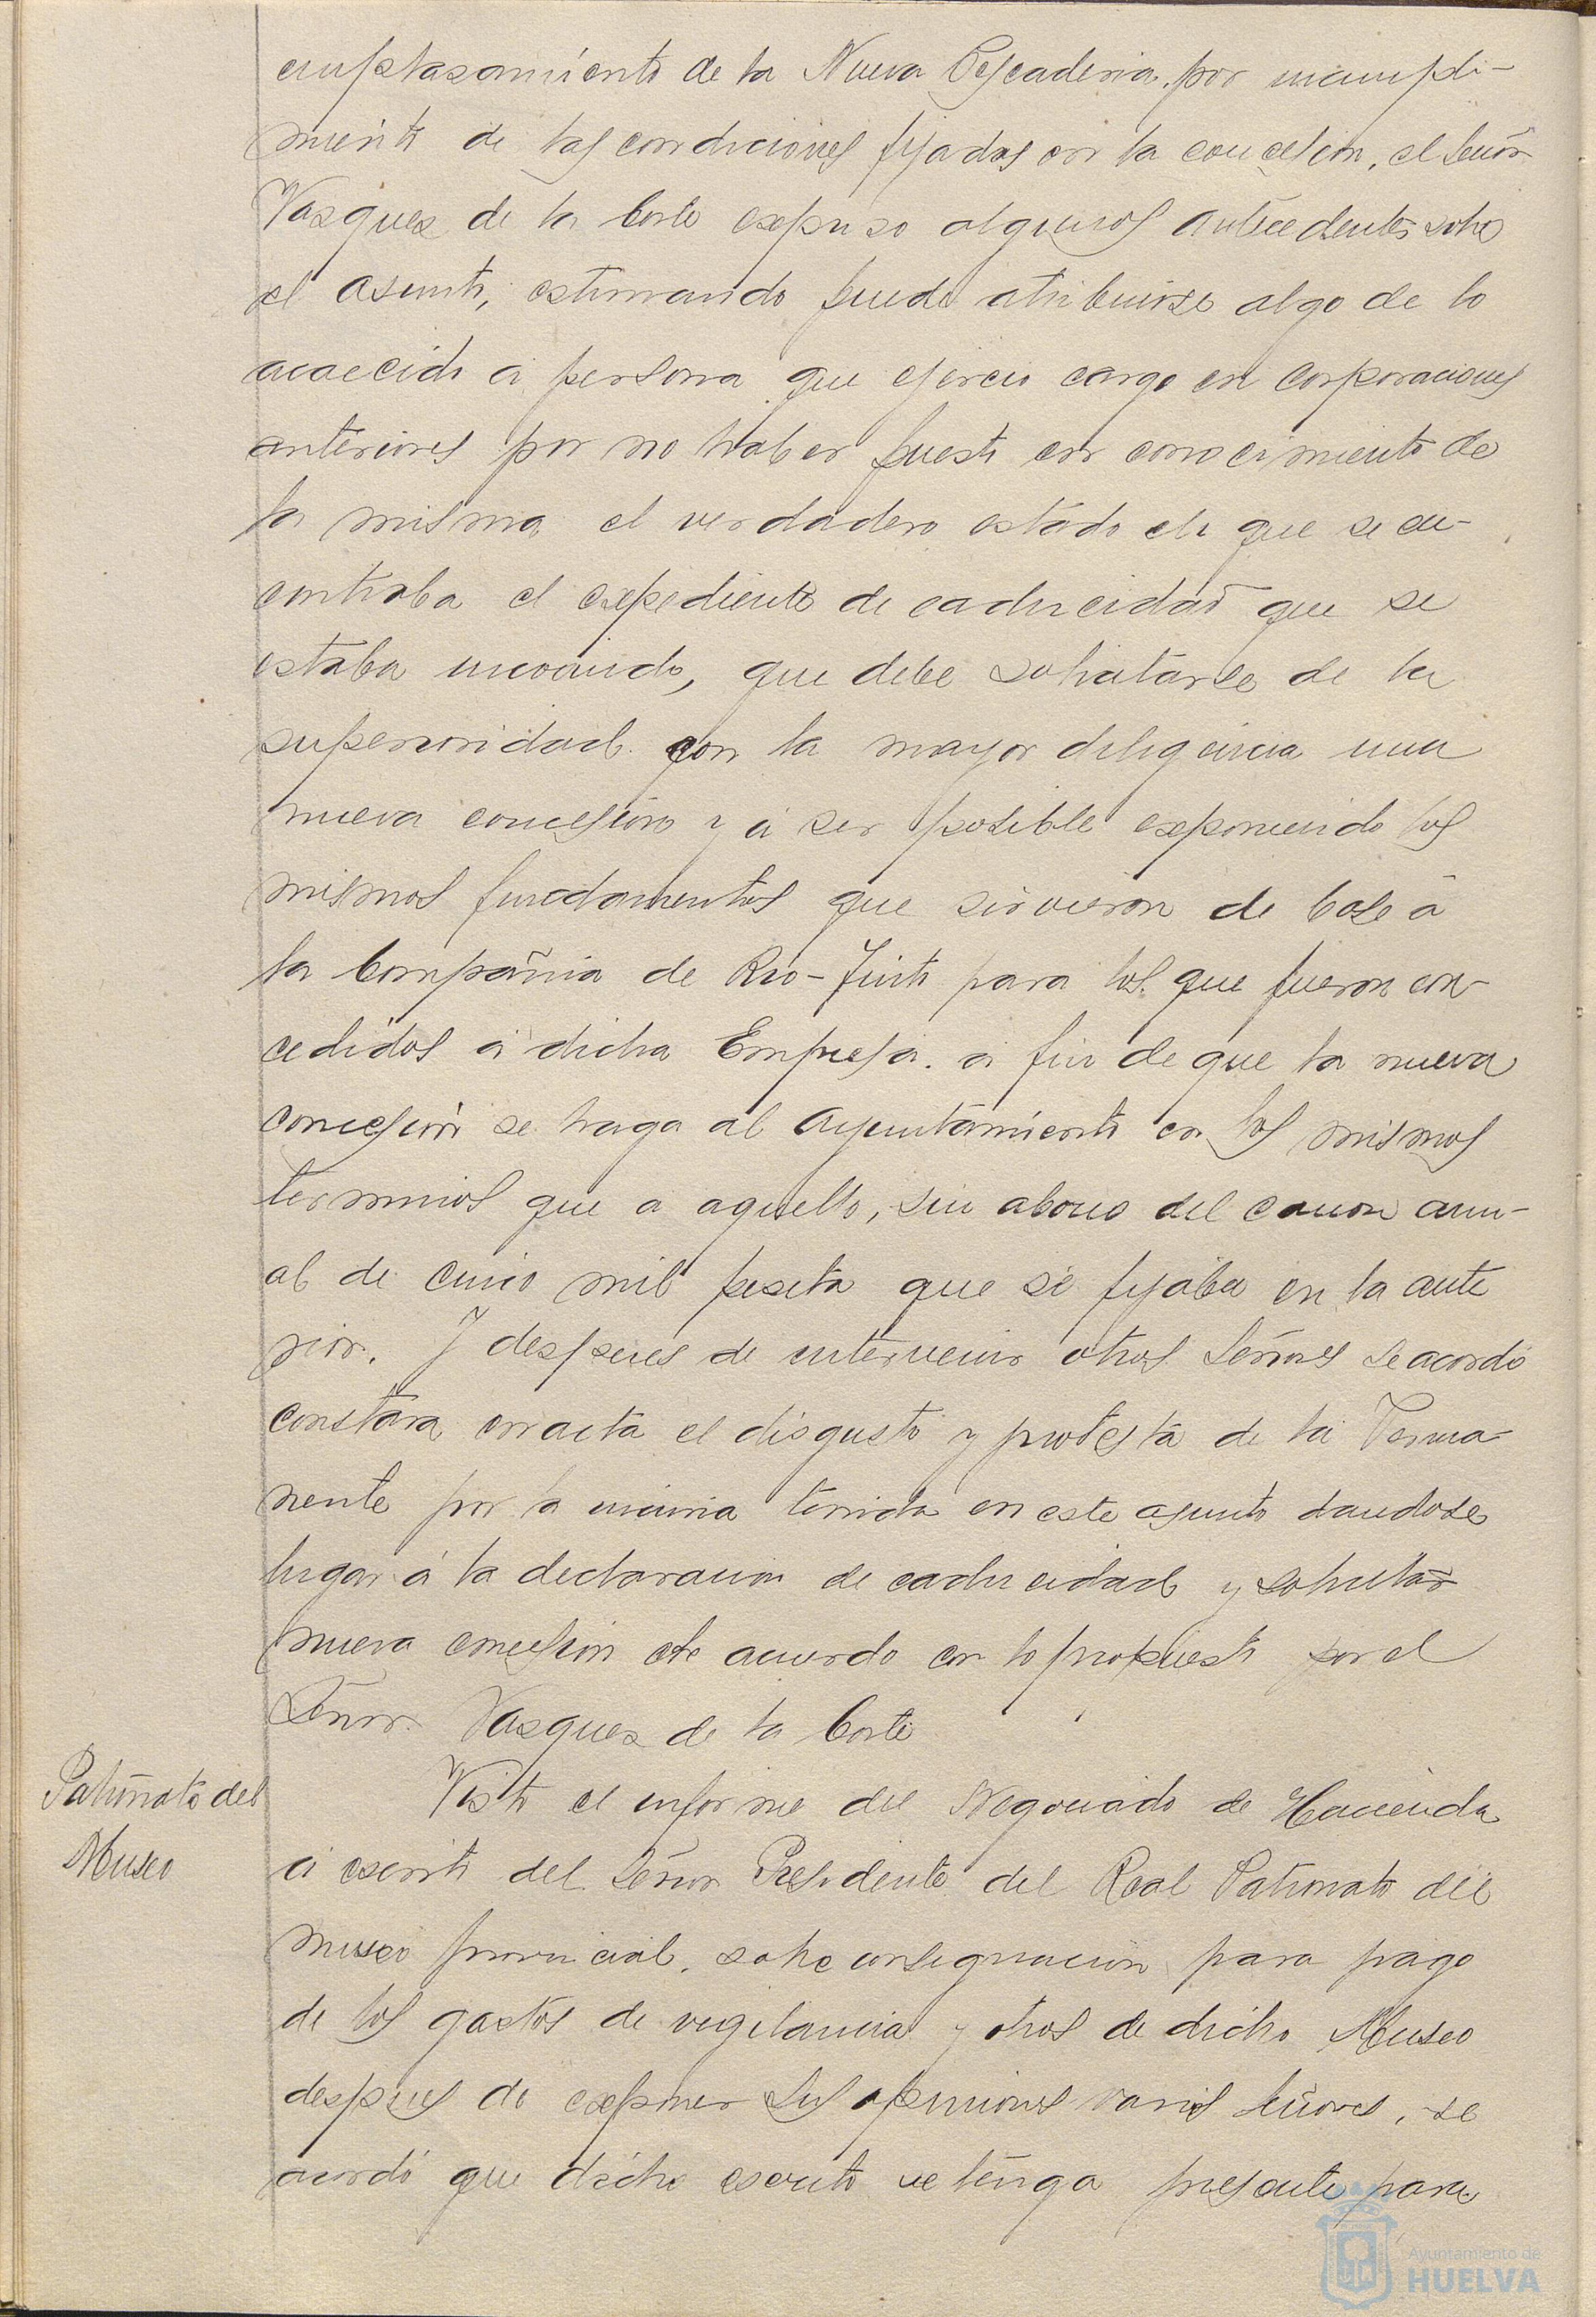 emplasamiento de la Nueva Pescaderia. por incumpli-
miento de las condiciones fijadas en la concesion, el Señor
Vasques de la Corte expuso algunos antecedentes sobre
el asunto, estimando puede atribuirse algo de lo
acaecido á persona que ejerció cargo en Corporaciones
anteriores por no haber puesto en conocimiento de
la misma el verdadero estado en que se en-
contraba el expediente de caducidad que se
estaba incoando, que debe solicitarse de la
superioridad con la mayor diligencia una
nueva concesion y á ser posible exponiendo los
mismos fundamentos que sirvieron de base á
la Compañia de Rio-Tinto para los que fueron con-
cedidos á dicha Empresa. á fin de que la nueva
concesion se haga al Ayuntamiento en los mismos
terminos que a aquella, sin abono del canon anu-
al de cinco mil peseta que se fijaba en la ante
rior. Y despues de intervenir otros Señores se acordó
constara en acta el disgusto y protesta de la Perma-
nente por la incuria tenida en este asunto dandose
lugar á la declaracion de caducidad y solicitar
nueva concesion de acuerdo con lo propuesto por el
Señor. Vasques de la Corte
Patronato del
Museo
Visto el informe del Negociado de Hacienda
á escrito del Señor Presidente del Real Patronato del
museo provincial. sobre consignacion para pago
de los gastos de vigilancia y otros de dicho Museo
despues de exponer sus opiniones varios Señores, se
acordó que dicho escrito se tenga presente para
Ayuntamiento de
HUELVA